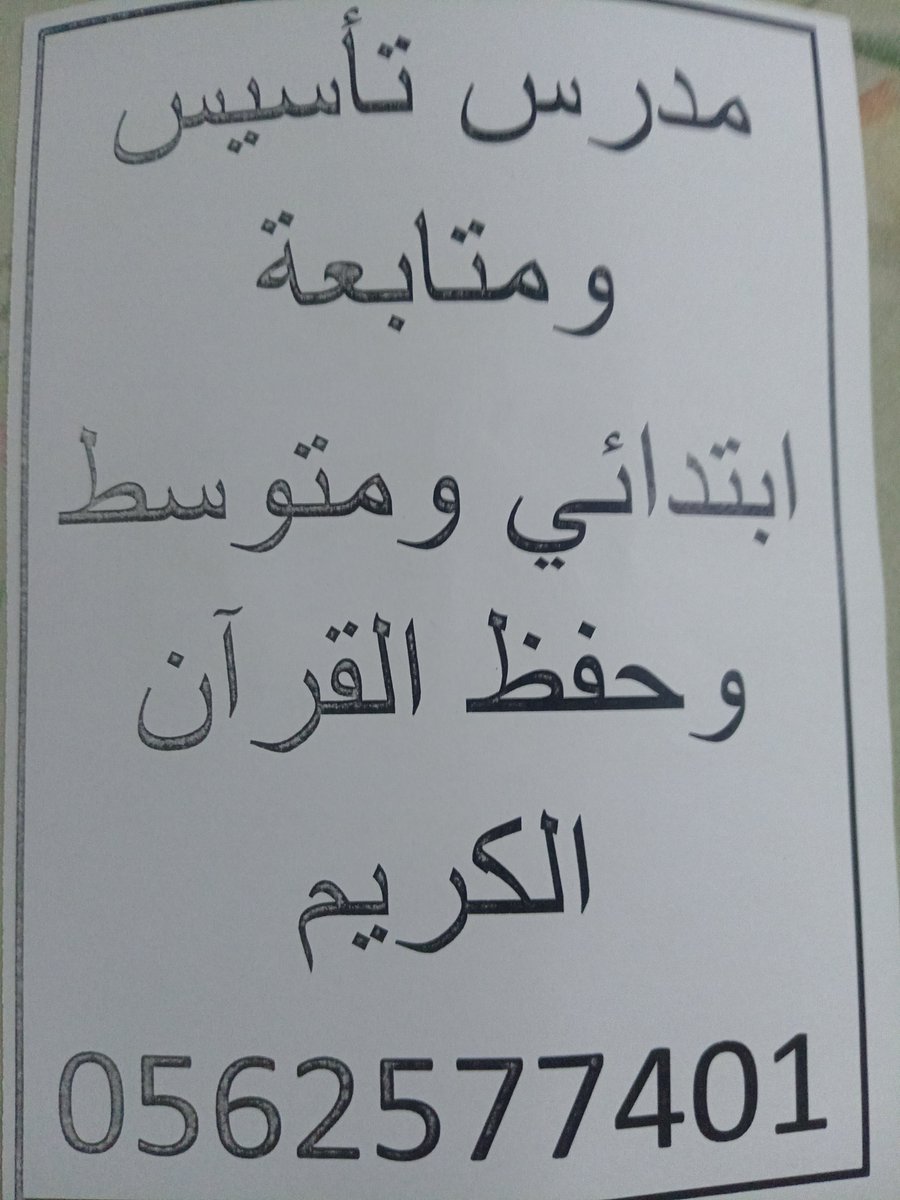 مدرس تأسيس
ومتابعة
ابتدائي ومتوسط
وحفظ القرآن
الكريم
0562577401